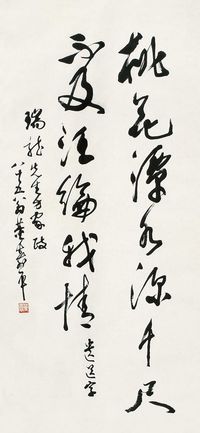 桃花潭水深千尺
不及汪伦我情
遗送字
瑞龙先生方家政
八十五翁董寿平